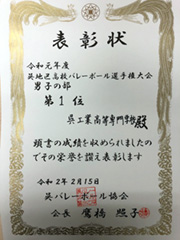 表彰状
令和元年度
呉地区高校バレーボール選手権大会
男子の部
第1位
呉工業高等専門学校殿
頭書の成績を収められましたの
でその栄誉を讃え表彰します
令和2年2月15日
呉バレーボール協会
会長 鷹橋 照子